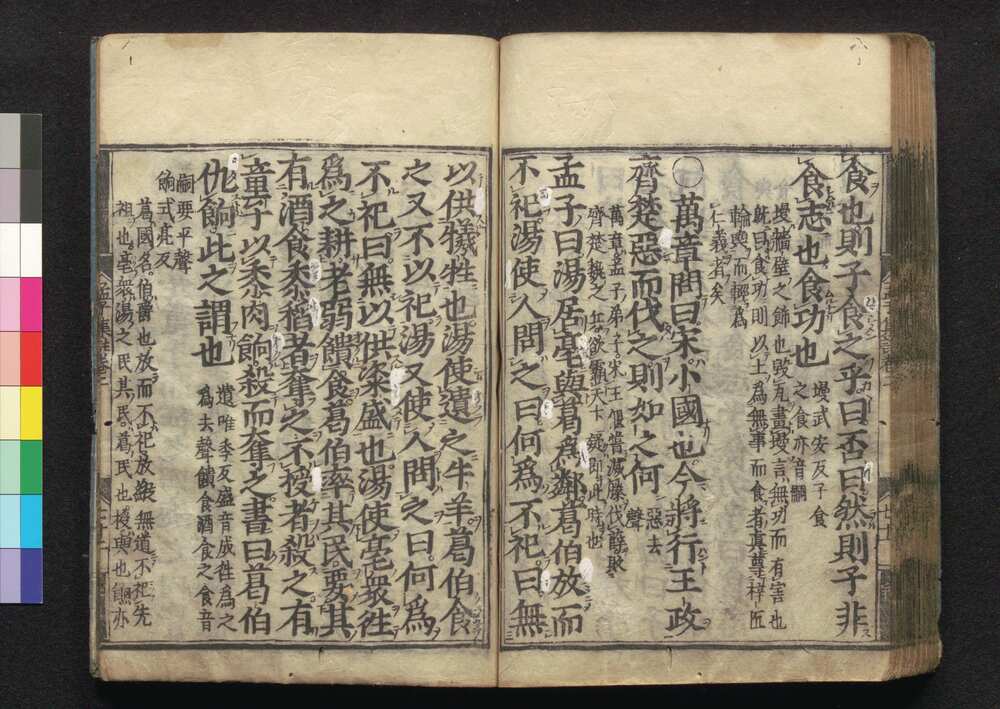 食也則子食之乎曰否曰然則子非
食志也食功也
墁武安反子食
之食亦音嗣
墁牆壁之飾也毀瓦畫墁言無功而有害也
既曰食功則以士為無事而食者真尊梓匠
輪輿而輕為
仁義者矣
○萬章問曰宋小國也今將行王政
齊楚惡而伐之則如之何
惡去
聲
萬章孟子弟子宋王偃嘗滅滕伐薛敗
齊楚魏之兵欲霸天下疑即此時也
孟子曰湯居亳與葛爲鄰葛伯放而
不祀湯使人問之曰何爲不祀曰無
以供犧牲也湯使遺之牛羊葛伯食
之又不以祀湯又使人問之曰何爲
不祀曰無以供粢盛也湯使亳衆往
爲之耕老弱饋食葛伯率其民要其
有酒食黍稻者奪之不授者殺之有
童子以黍肉餉殺而奪之書曰葛伯
仇餉此之謂也
遺唯季反盛音成往為之
為去聲饋食酒食之食音
嗣要平聲
餉式亮反
葛國名伯爵也放而不祀放縱無道不祀先
祖也亳衆湯之民其民葛民也授與也餉亦